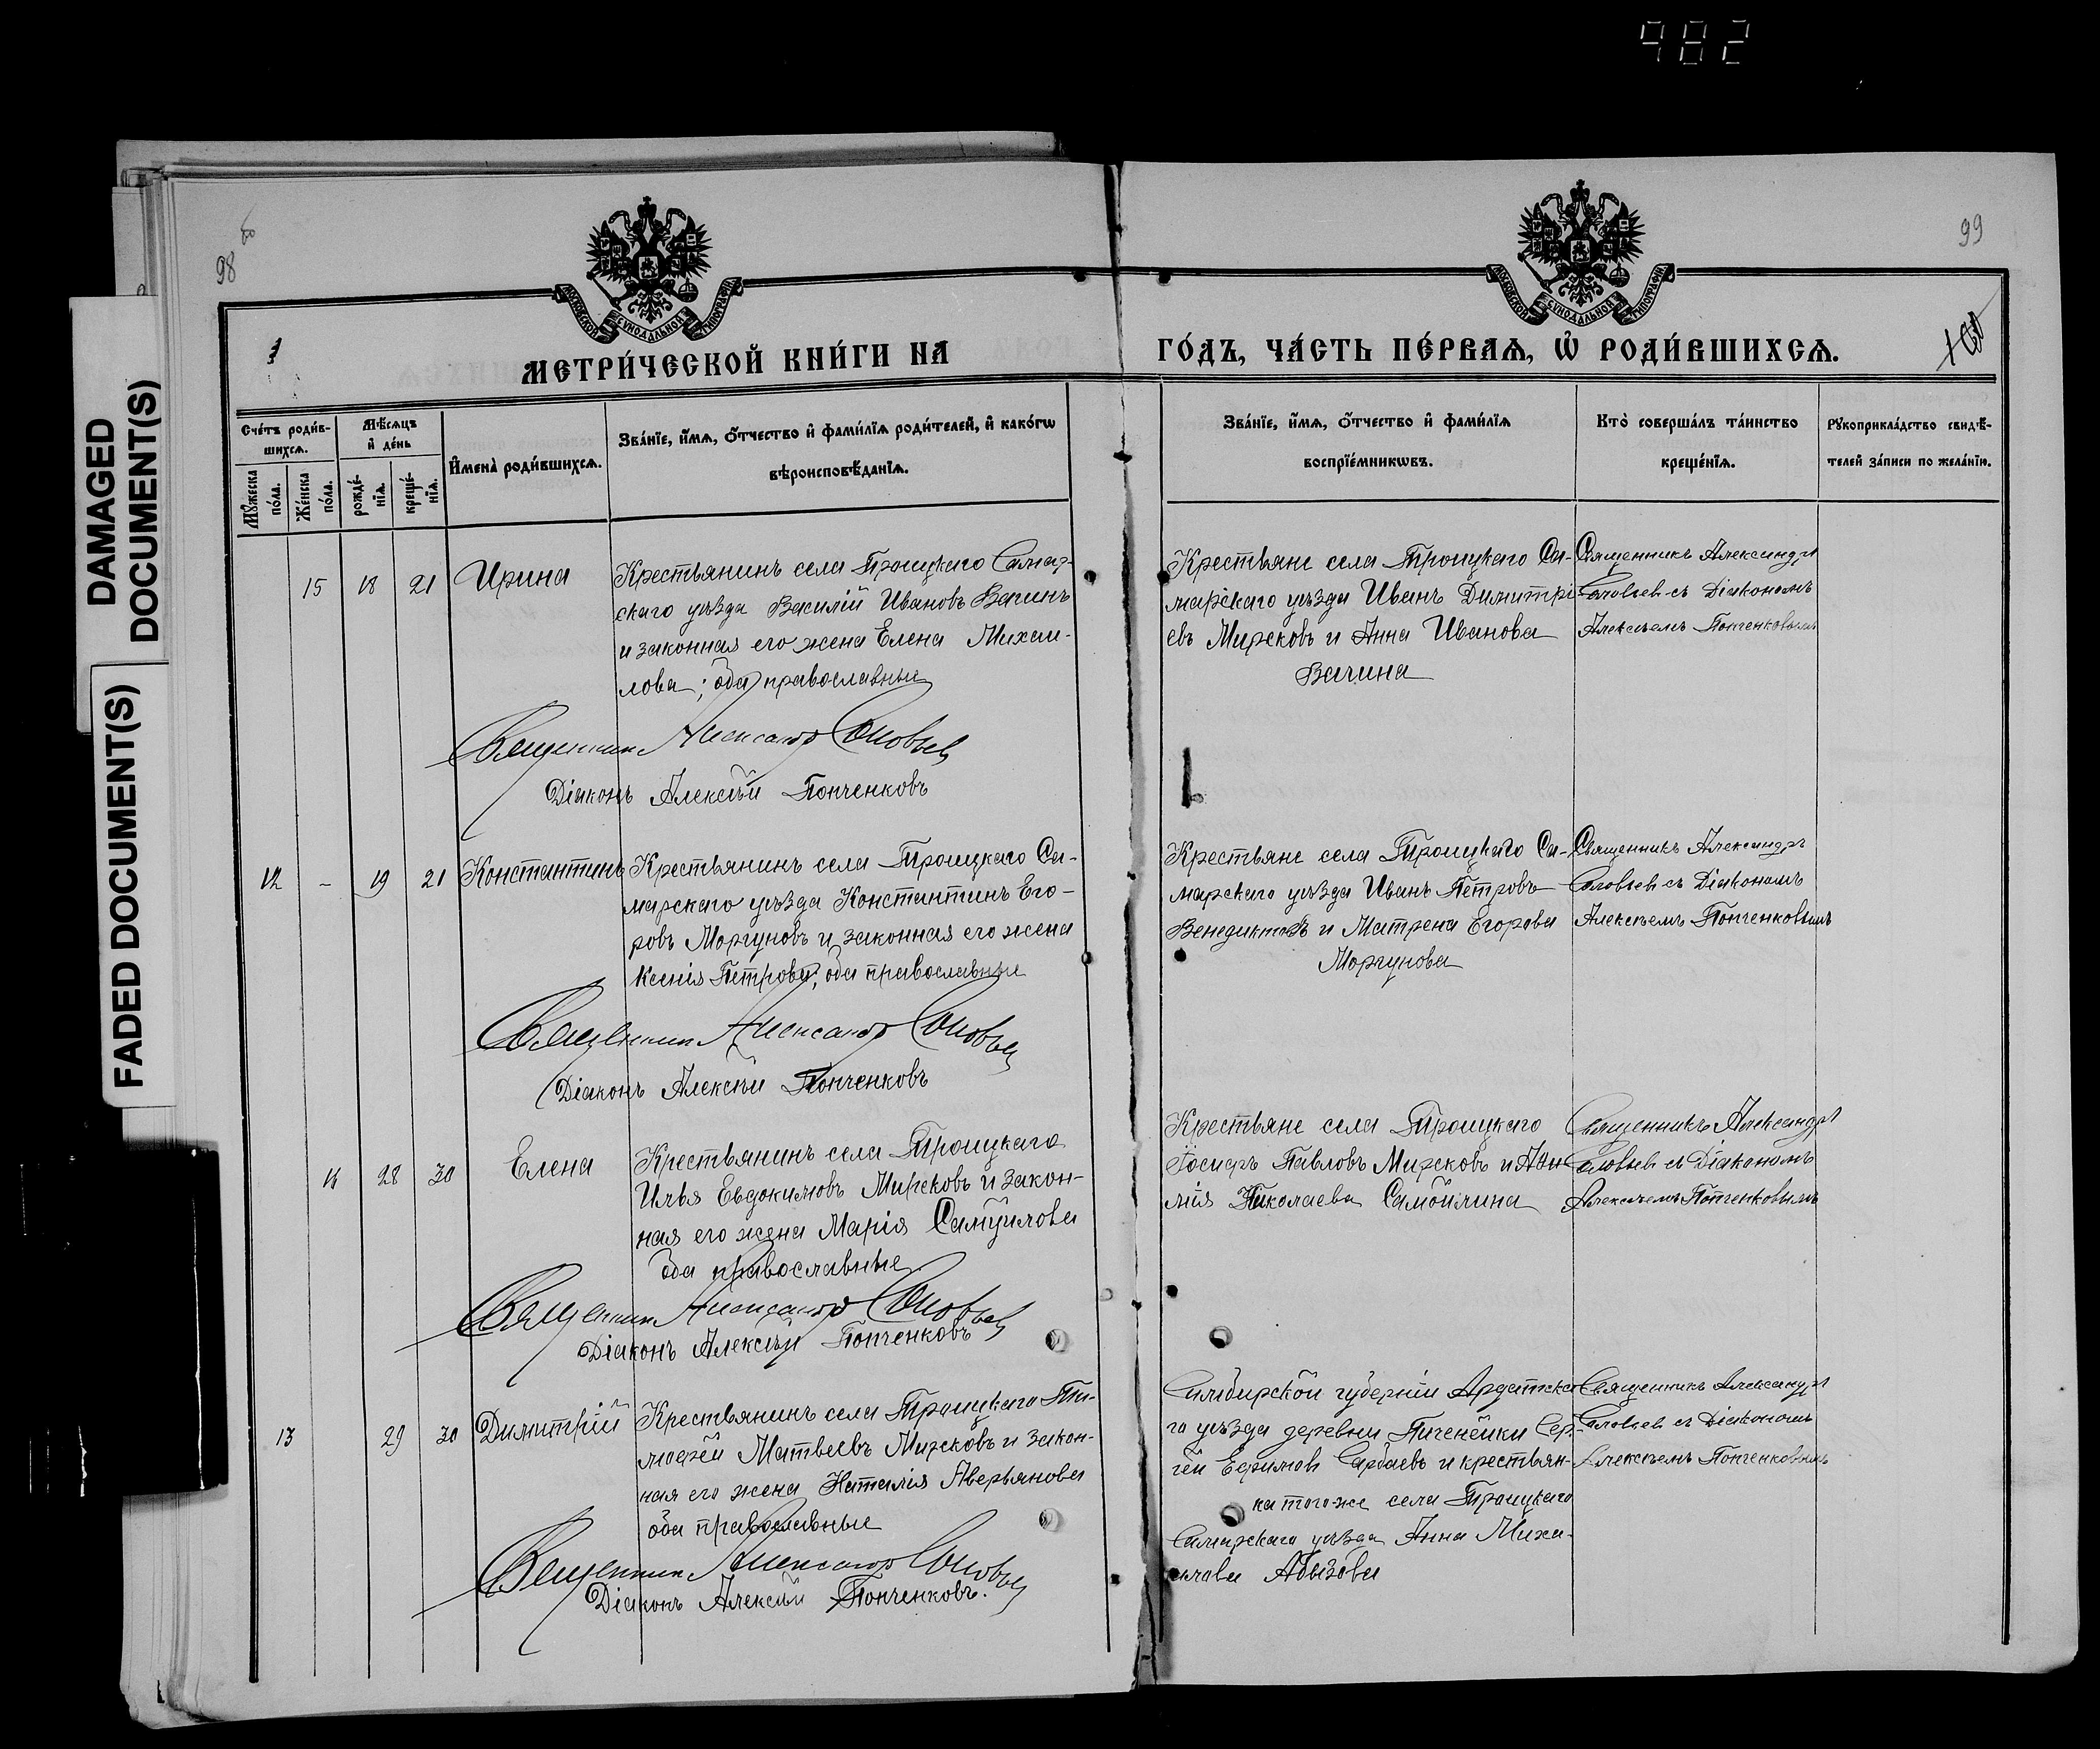 482
DAMAGED
DOCUMENT(S)
FADED DOCUMENT(S)
98
99
МОСКОВСКОЙ СѴНОДАЛЬНОЙ ТИПОГРАФІИ
МОСКОВСКОЙ СѴНОДАЛЬНОЙ ТИПОГРАФІИ
МЕТРИ́ЧЕСКОЙ КНИ́ГИ НА
ГО́ДЪ, ЧА́СТЬ ПЕ́РВАѦ, Ѡ҆ РОДИ́ВШИХСѦ.
Сче́тъ роди́в-
шихсѧ.
Мꙋ́жеска
по́ла.
Же́нска
по́ла.
Мѣ́сѧцъ
и҆ де́нь
рожде́-
нїѧ.
креще́-
нїѧ.
И҆мена̀ роди́вшихсѧ.
Зва́нїе, и҆́мѧ, ѻ҆́тчество и҆ фами́лїѧ роди́телей, и҆ како́гѡ
вѣроисповѣ́данїѧ.
Зва́нїе, и҆́мѧ, ѻ҆́тчество и҆ фами́лїѧ
воспрїе́мникѡвъ.
Кто̀ соверша́лъ та́инство
креще́нїѧ.
Рꙋкоприкла́дство свидѣ́-
телей за́писи по жела́нїю.
15 18 21 Ирина
Крестьянинъ села Троицкаго Самар-
скаго уѣзда Василій Ивановъ Вагинъ
и законная его жена Елена Михаи-
лова; оба православные
Священникъ Александр Соловьев
Діаконъ Алексѣй Попченковъ
Крестьяне села Троицкаго Са-
марскаго уѣзда Иванъ Димитрі
евъ Мирсковъ и Анна Иванова
Вагина
Священникъ Александръ
Соловьев съ Діакономъ
Алексѣемъ Попченковымъ
12 - 19 21 Константинъ
Крестьянинъ села Троицкаго Са-
марскаго уѣзда Константинъ Его-
ровъ Моргуновъ и законная его жена
Ксенія Петрова; оба православные
Священникъ Александр Соловьев
Діаконъ Алексѣй Попченковъ
Крестьяне села Троицкаго Са-
марскаго уѣзда Иванъ Петровъ
Венедиктовъ и Матрена Егорова
Моргунова
Священникъ Александръ
Соловьев съ Діакономъ
Алексѣемъ Попченковымъ
16 28 30 Елена
Крестьянинъ села Троицкаго
Илья Евдокимовъ Мирсковъ и закон-
ная его жена Марія Самуилова
оба православные
Священникъ Александр Соловьев
Діаконъ Алексѣй Попченковъ
Крестьяне села Троицкаго
Іосифъ Павловъ Мирсковъ и
Николаева Самойлина
Священникъ Александръ
Соловьев съ Діакономъ
Алексѣемъ Попченковымъ
13 29 30 Димитрій
Крестьянинъ села Троицкаго Ти-
мофей Матвеевъ Мирсковъ и закон-
ная его жена Наталія Аверьянова
оба православные
Священникъ Александр Соловьев
Діаконъ Алексѣй Попченковъ.
Симбирской губерніи Ардатска
го уѣзда деревни Пиченейки Сер-
гей Ефимовъ Сарбаевъ и крестьян-
ка того-же села Троицкаго
Самарскаго уѣзда Анна Миха-
илова Абызова
Священникъ Александръ
Соловьев съ Діакономъ
Алексѣемъ Попченковымъ